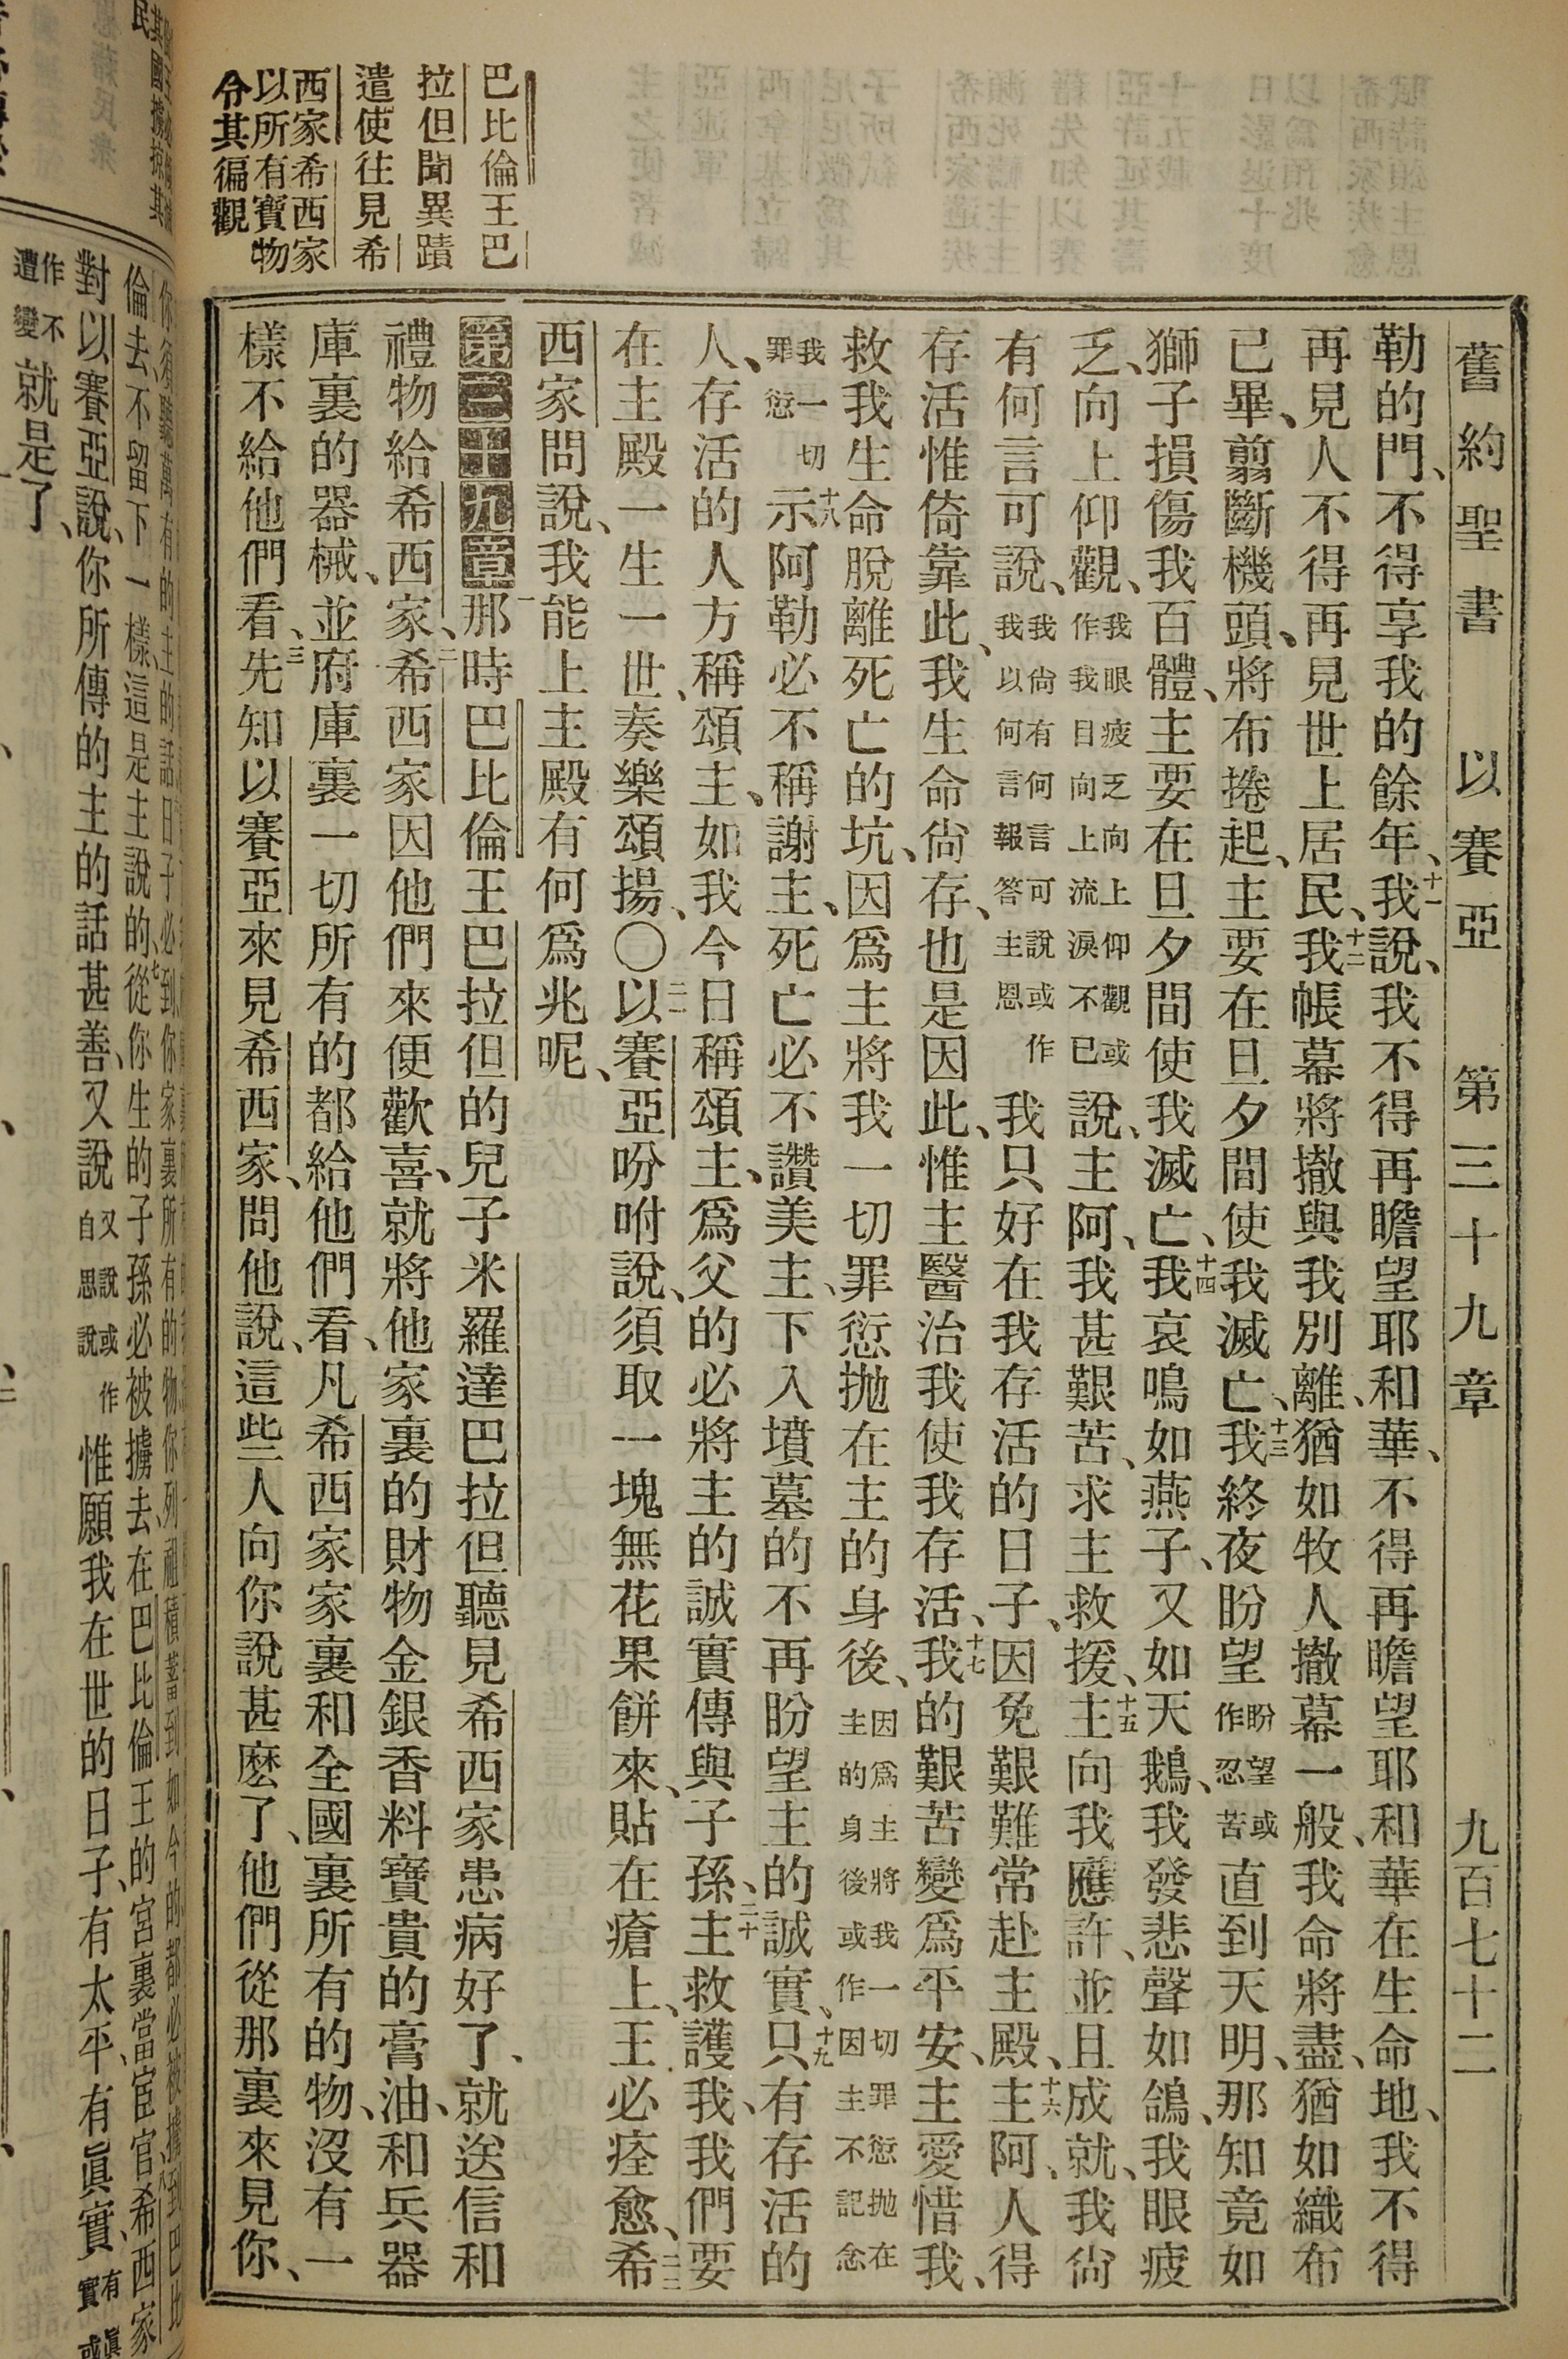 舊約聖書 以賽亞 第三十九章 九百七十二
勒的門、不得享我的餘年、十一我說、我不得再瞻望耶和華、不得再瞻望耶和華在生命地、我不得
再見人不得再見世上居民、十二我帳幕將撤與我別離、猶如牧人撤幕一般、我命將盡、猶如織布
已畢、翦斷機頭、將布捲起、主要在旦夕間使我滅亡、十三我終夜盼望盼望或作忍苦直到天明、那知竟如
獅子損傷我百體、主要在旦夕間使我滅亡、十四我哀鳴如燕子、又如天鵝、我發悲聲如鴿、我眼疲
乏、向上仰觀、我眼疲乏向上仰觀或作我目向上流淚不已說、主阿、我甚艱苦、求主救援、十五主向我應許、並且成就、我尙
有何言可說、我尙有何言可說或作我以何言報答主恩我只好在我存活的日子、因免艱難常赴主殿、十六主阿、人得
存活惟倚靠此、我生命尙存、也是因此、惟主醫治我使我存活、十七我的艱苦變爲平安、主愛惜我、
救我生命脫離死亡的坑、因爲主將我一切罪愆拋在主的身後、因爲主將我一切罪愆拋在主的身後或作因主不記念
我一切罪愆十八示阿勒必不稱謝主、死亡必不讚美主、下入墳墓的不再盼望主的誠實、十九只有存活的
人、存活的人方稱頌主、如我今日稱頌主、爲父的必將主的誠實傳與子孫、二十主救護我、我們要
在主殿一生一世、奏樂頌揚、○二一以賽亞吩咐說、須取一塊無花果餅來、貼在瘡上、王必痊愈、二二希
西家問說、我能上主殿有何爲兆呢、
第三十九章一那時巴比倫王巴拉但的兒子米羅達巴拉但聽見希西家患病好了、就送信和
禮物給希西家、二希西家因他們來便歡喜、就將他家裏的財物金銀香料寶貴的膏油、和兵器
庫裏的器械、並府庫裏一切所有的都給他們看、凡希西家家裏和全國裏所有的物、沒有一
樣不給他們看、三先知以賽亞來見希西家、問他說、這些人向你說甚麽了、他們從那裏來見你、
巴比倫王巴
拉但聞異蹟
遣使往見希
西家希西家
以所有寶物
令其徧觀
倫去、不留下一樣、這是主說的、七從你生的子孫必被擄去、在巴比倫王的宮裏當宦官、希西家
對以賽亞說、你所傳的主的話甚善、又說又說或作自思說惟願我在世的日子、有太平、有眞實、有眞實或
作不遭變就是了、